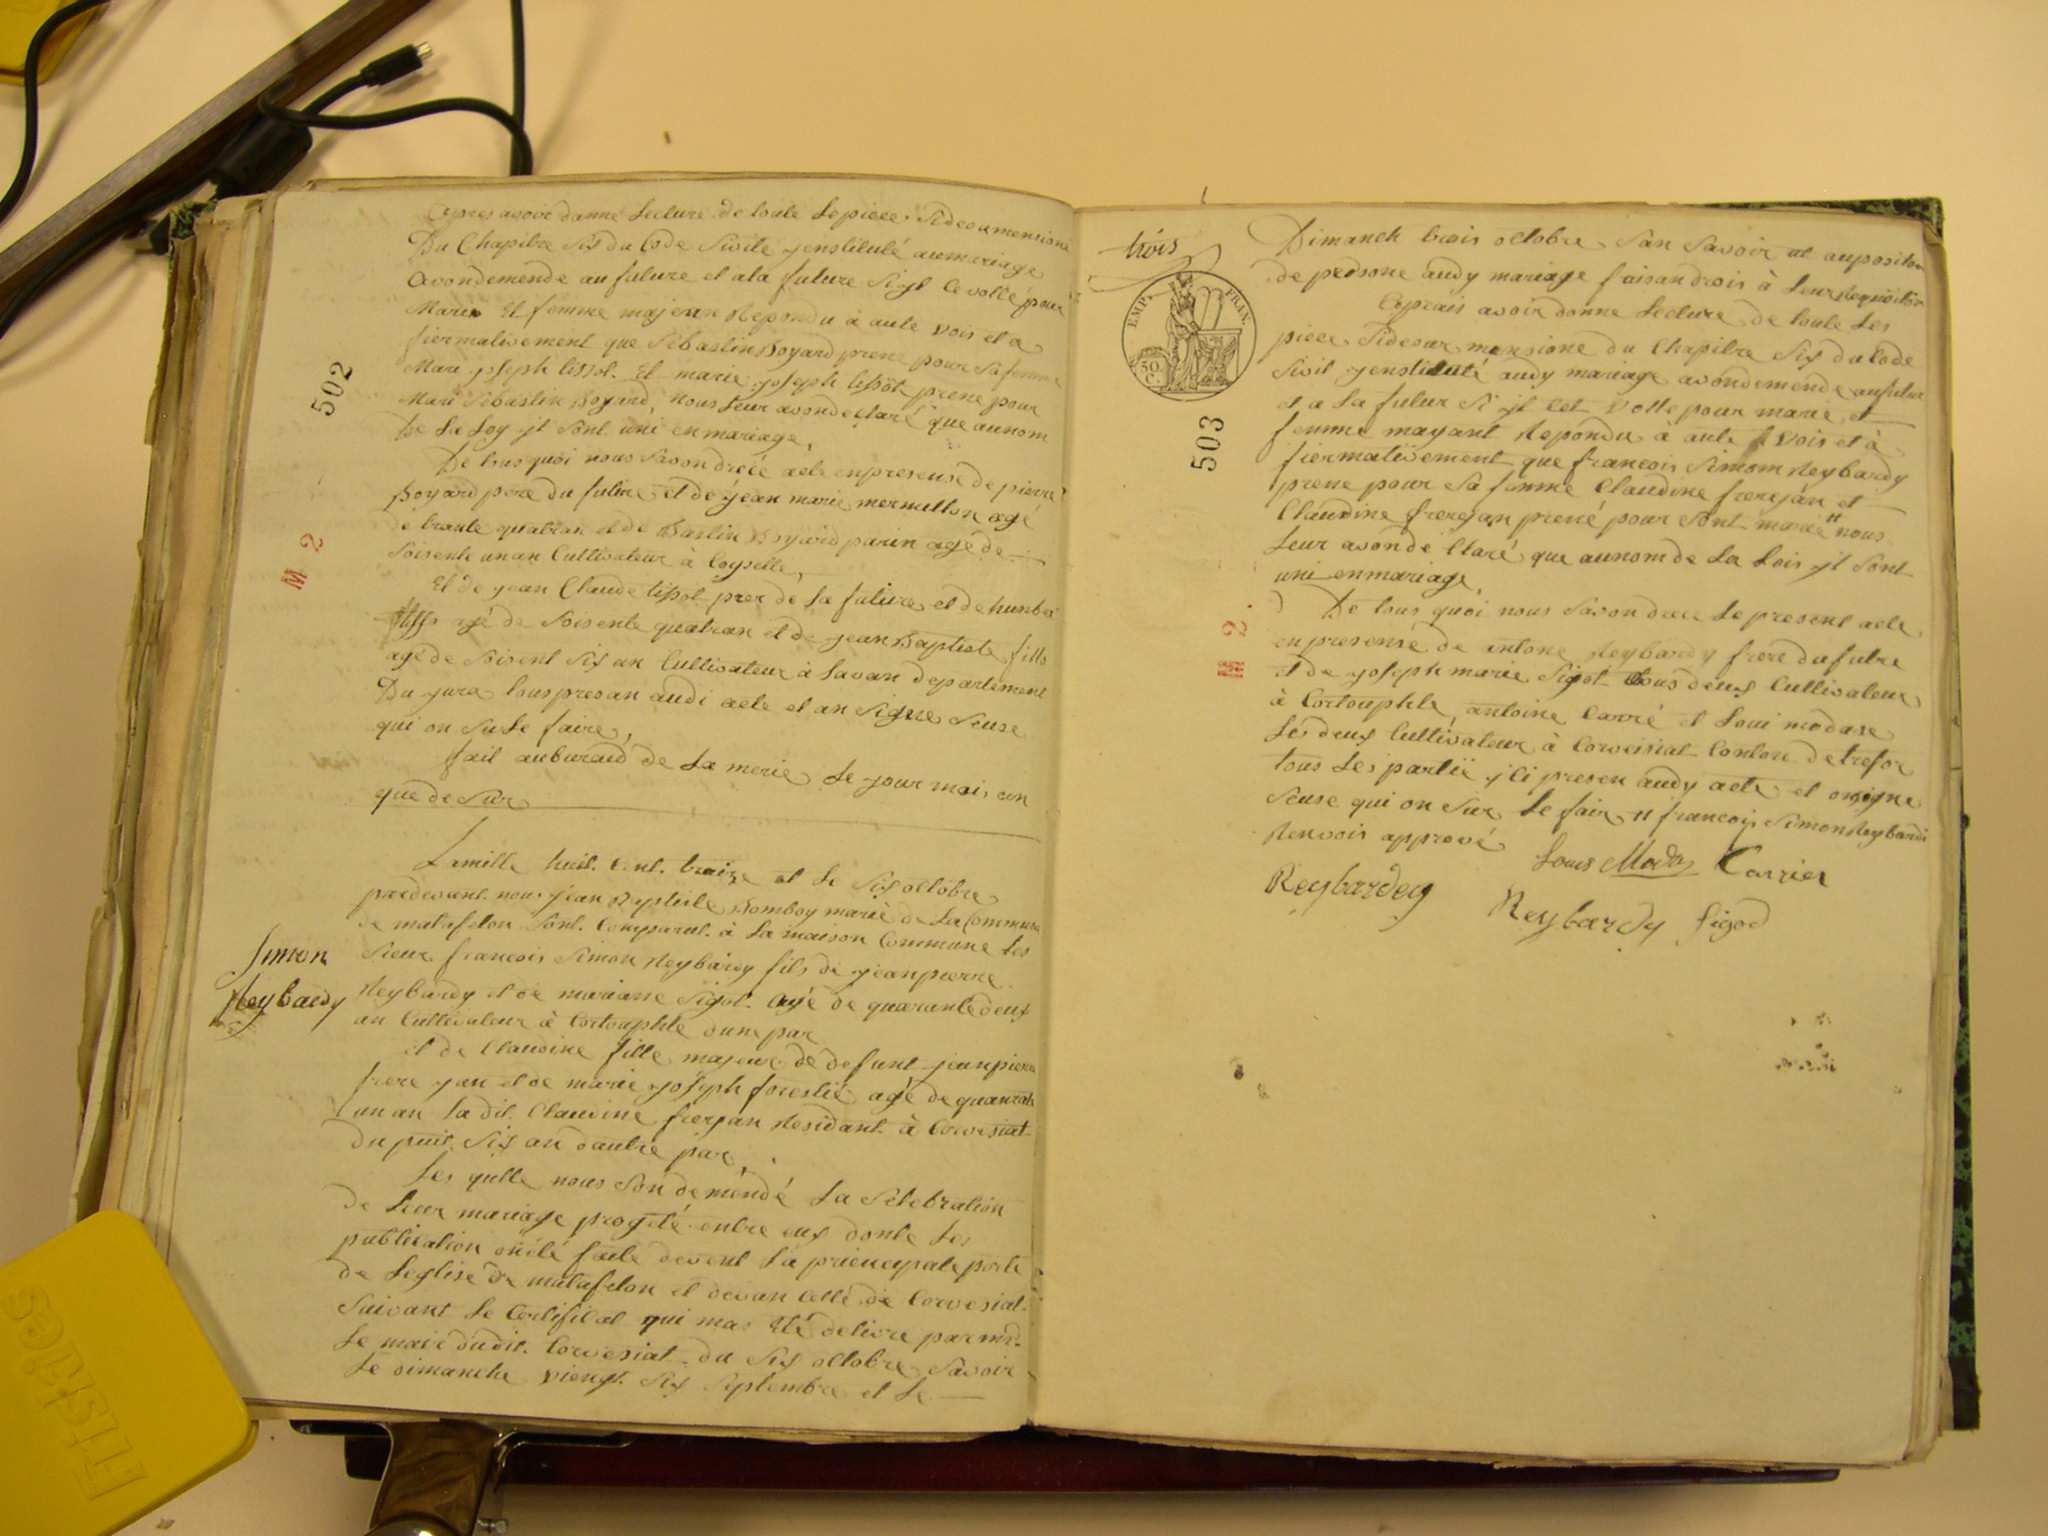 502
M 2
Apres avoir donné Lecture de toute Le piece Sideçu mensione
Du Chapitre Six du Code Sivile jenstitulé aumariage
avondemende au future et a la future Si jl le volle pour
Mare Et femme majean Repondu à aute vois et a
fiermativement que Sebastin Boyard prene pour Sa femme
Mari joseph tissot. Et marie joseph tissot prene pour
Mari Sebastin Boyard, nous Leur avon declaré que aunom
De La Loy jl Sont uni en mariage,
De tous quoi nous Savon dreçé acte enpresense de pierre
Boyard pere du future et de jean marie mermillon agé
de trante quatran et de Bastin Boyard parin agé de
Soisente un an Cultivateur à Coyselle,
Et de jean Claude tissot prer de La future et de
agé de Soisente quatran et de jean Baptiste fills
agé de Soisent Six an Cultivateur à Savan departement
Du jura tous presan audi acte et an Signe Seuse
qui on Su Le faire,
fait auburaud de La merie Le jour mois an
que de Sur
Simon
Reybardy
L mille huit. Cent. traize et Le Six octobre
pardevant nous jean Baptiste Bomboy marie de La Commune
de matafelon Sont. Comparut. à La maison Commune Les
Sieur francois Simon Reybardy fils de jeanpierre
Reybardy et de mariane Sigot. agé de quarante deux
an Cultivateur à Cortouphle dune par
et de Claudine fille majeur de defunt jeanpiere
frere jan et de marie joseph forestié agé de quarante
un an La dit. Claudine frerjan Residant à Corvesiat
Du puit. Six an dautre par,
Les qulle nous Son demendé La Selebration
de Leur mariage progeté entre eux donte Les
publication onété faite devent La priencipale porte
de Leglise de matafelon et devan Celle de Corvesiat.
Suivant Le Certifical qui mas Eté delivre par mr.
Le maire dudit. Corvesiat du Six octobre Savoir
Le dimanche viengt. Six Septembre et Le
trois
EMP. FRAN.
50 C.
503
M 2.
Dimanch trois octobre San Savoir ut auposition
de persone audy mariage faisandrois à Leur Requisition
Aprais avoir donne Lecture de toute Les
piece Sidesur mensione du Chapitre Six du Code
Sivil jenstitulé audy mariage avondemende aufutur
et a La futur Si jl Let volle pour marie et
femme mayant Repondu à aute vois et à
fiermativement que francois Simom Reybardy
prene pour Sa femme Claudine frerejan et
Claudine frerejan prené pour Sont marie # nous
Leur avon dé Claré que aunom de La Lois jl Sont
uni enmariage
De tous quoi nous Savon drece Le present acte
en presense de antone Reybardy frere dufutre
et de joseph marie Sigot tous deux Cultivateur
à Cortouphle, antoine Carrié et Loui modase
Les deux Cultivateur à Corveisiat Conton de trefor
tous Les partië jli presen audy acte et onsigne
Seuse qui on Sur Le fair # francois Simon Reybardi
Renvois apprové
Louis Modas Carrier
Reybardey Reybardy Sigod
Tistdes